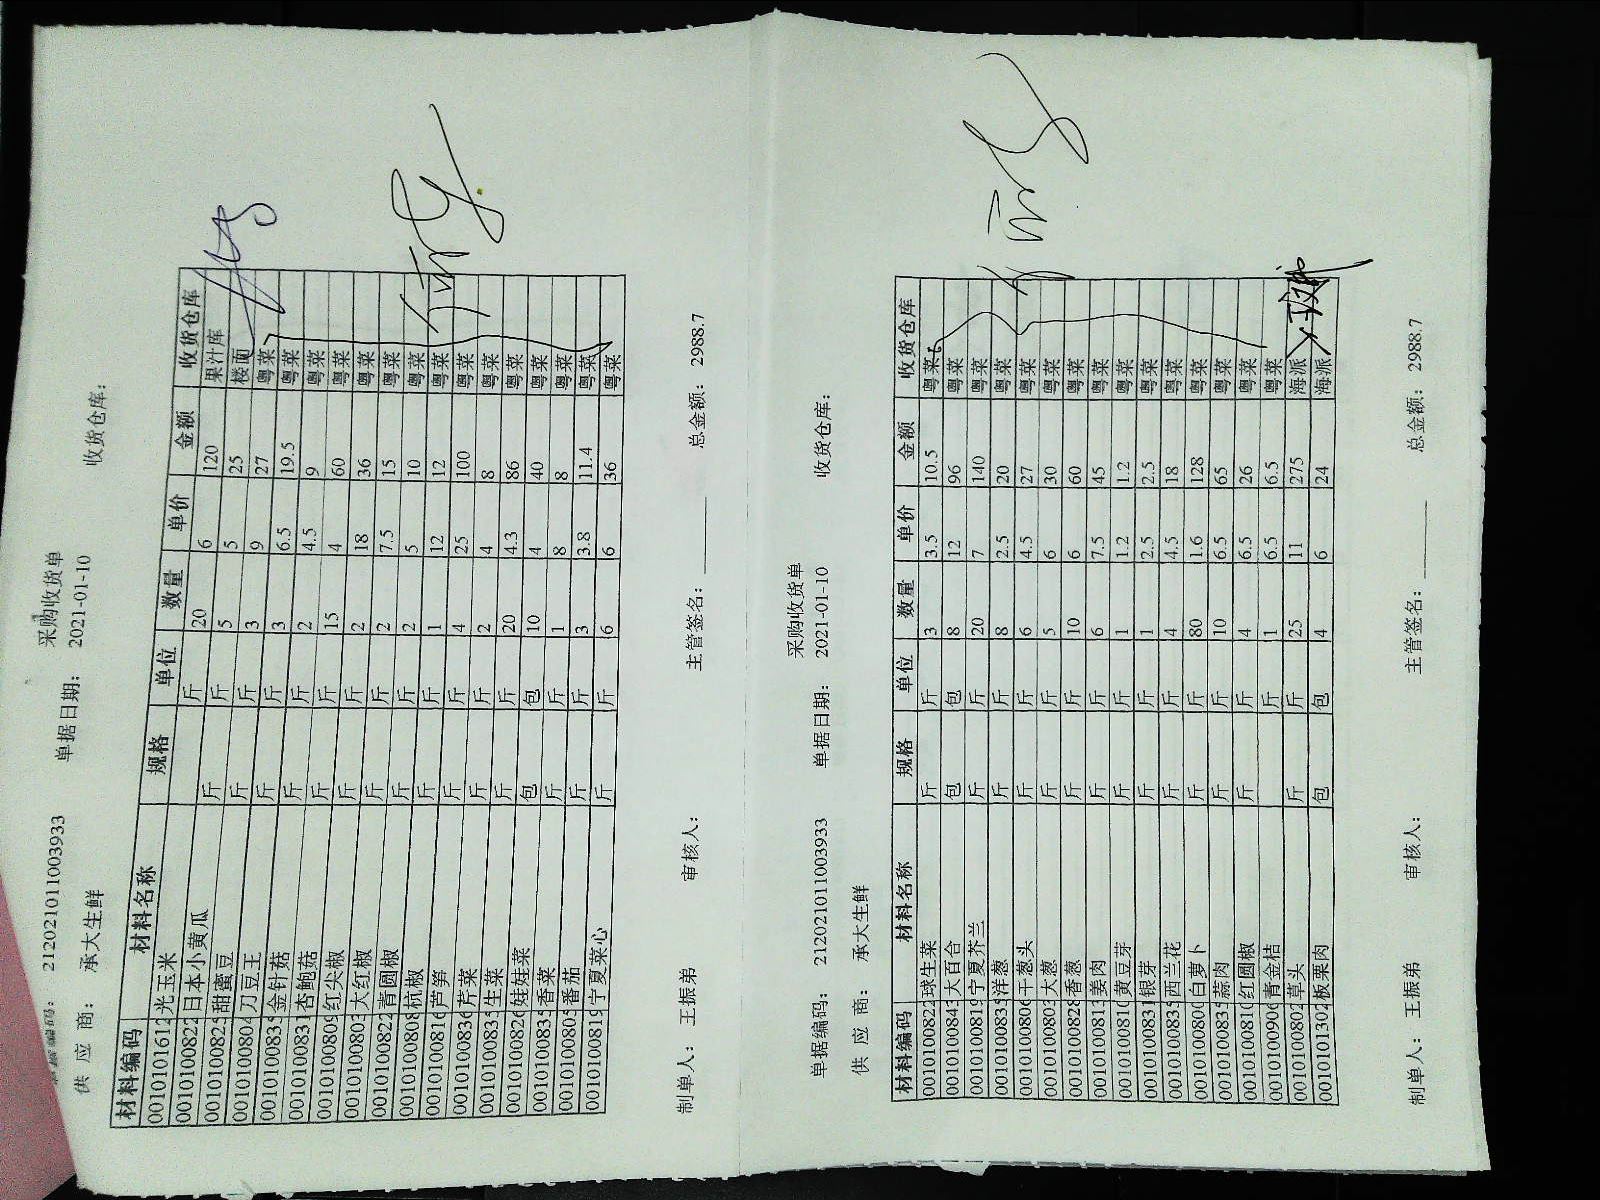 采购收货单
单据编码: 212021011003933 单据日期: 2021-01-10
供 应 商: 承大生鲜 收货仓库:
材料编码 材料名称 规格 单位 数量 单价 金额 收货仓库
0010101612 光玉米 斤 20 6 120 果汁库
0010100822 日本小黄瓜 斤 斤 5 5 25 楼面
0010100825 甜蜜豆 斤 斤 3 9 27 粤菜
0010100804 刀豆王 斤 斤 3 6.5 19.5 粤菜
0010100835 金针菇 斤 斤 2 4.5 9 粤菜
0010100831 杏鲍菇 斤 斤 15 4 60 粤菜
0010100809 红尖椒 斤 斤 2 18 36 粤菜
0010100803 大红椒 斤 斤 2 7.5 15 粤菜
0010100822 青圆椒 斤 斤 2 5 10 粤菜
0010100808 杭椒 斤 斤 1 12 12 粤菜
0010100816 芦笋 斤 斤 4 25 100 粤菜
0010100836 芹菜 斤 斤 2 4 8 粤菜
0010100835 生菜 斤 斤 20 4.3 86 粤菜
0010100826 娃娃菜 包 包 10 4 40 粤菜
0010100835 香菜 斤 斤 1 8 8 粤菜
0010100805 番茄 斤 斤 3 3.8 11.4 粤菜
0010100819 宁夏菜心 斤 斤 6 6 36 粤菜
制单人: 王振弟 审核人: 主管签名: 总金额: 2988.7
采购收货单
单据编码: 212021011003933 单据日期: 2021-01-10
供 应 商: 承大生鲜 收货仓库:
材料编码 材料名称 规格 单位 数量 单价 金额 收货仓库
0010100822 球生菜 斤 斤 3 3.5 10.5 粤菜
0010100843 大百合 包 包 8 12 96 粤菜
0010100819 宁夏芥兰 斤 斤 20 7 140 粤菜
0010100835 洋葱 斤 斤 8 2.5 20 粤菜
0010100806 干葱头 斤 斤 6 4.5 27 粤菜
0010100803 大葱 斤 斤 5 6 30 粤菜
0010100828 香葱 斤 斤 10 6 60 粤菜
0010100813 姜肉 斤 斤 6 7.5 45 粤菜
0010100810 黄豆芽 斤 斤 1 1.2 1.2 粤菜
0010100831 银芽 斤 斤 1 2.5 2.5 粤菜
0010100835 西兰花 斤 斤 4 4.5 18 粤菜
0010100800 白萝卜 斤 斤 80 1.6 128 粤菜
0010100835 蒜肉 斤 斤 10 6.5 65 粤菜
0010100810 红圆椒 斤 斤 4 6.5 26 粤菜
0010100906 青金桔 斤 1 6.5 6.5 粤菜
0010100802 草头 斤 斤 25 11 275 海派
0010101302 板栗肉 包 包 4 6 24 海派
制单人: 王振弟 审核人: 主管签名: 总金额: 2988.7